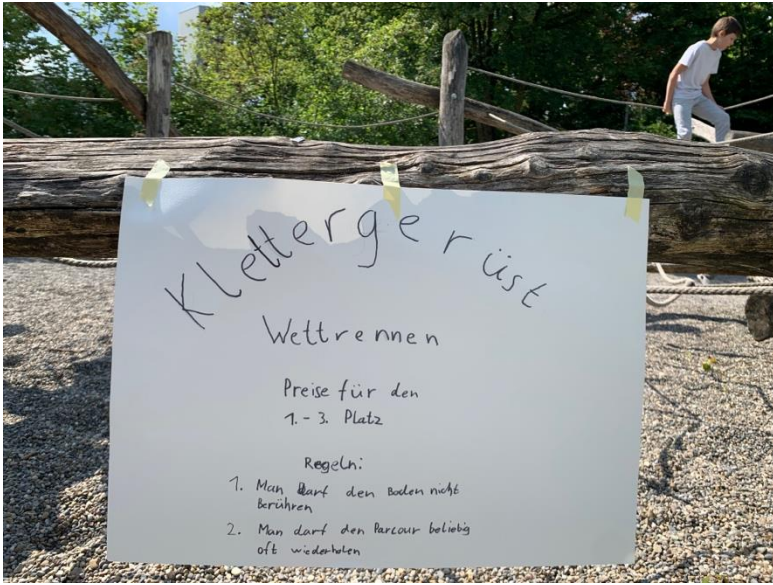 Klettergerüst
Wettrennen
Preise für den
1.-3. Platz
Regeln:
1. Man darf den Boden nicht
Berühren
2. Man darf den Parcour beliebig
oft wiederholen